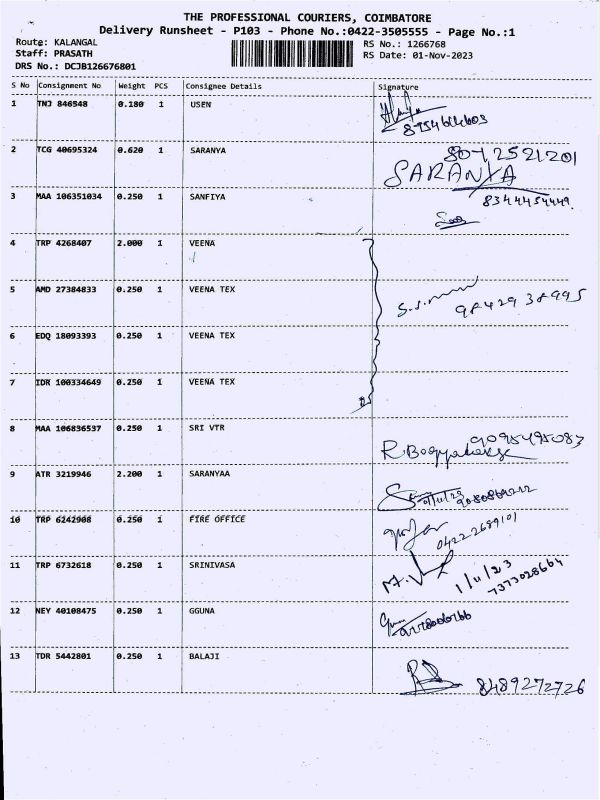 THE PROFESSIONAL COURIERS, COIMBATORE
Delivery Runsheet - P103 - Phone No.:0422-3505555 - Page No.:1
Route: KALANGAL RS No.: 1266768
Staff: PRASATH RS Date: 01-Nov-2023
DRS No.: DCJB126676801
S No Consignment No Weight PCS Consignee Details Signature
1 TNJ 846548 0.180 1 USEN
2 TCG 40695324 0.620 1 SARANYA
SARANYA
3 MAA 106351034 0.250 1 SANFIYA
4 TRP 4268407 2.000 1 VEENA
5 AMD 27384833 0.250 1 VEENA TEX
98429 38995
6 EDQ 18093393 0.250 1 VEENA TEX
7 IDR 100334649 0.250 1 VEENA TEX
8 MAA 106836537 0.250 1 SRI VTR
9095495087
9 ATR 3219946 2.200 1 SARANYAA
10 TRP 6242908 0.250 1 FIRE OFFICE
04222689101
11 TRP 6732618 0.250 1 SRINIVASA
1/11/23
7373028664
12 NEY 40108475 0.250 1 GGUNA
13 TDR 5442801 0.250 1 BALAJI
8489272726